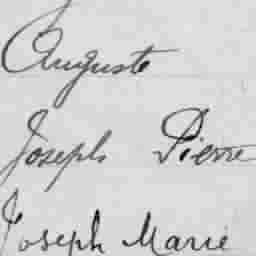 Auguste
Joseph Pierre
Joseph Marie